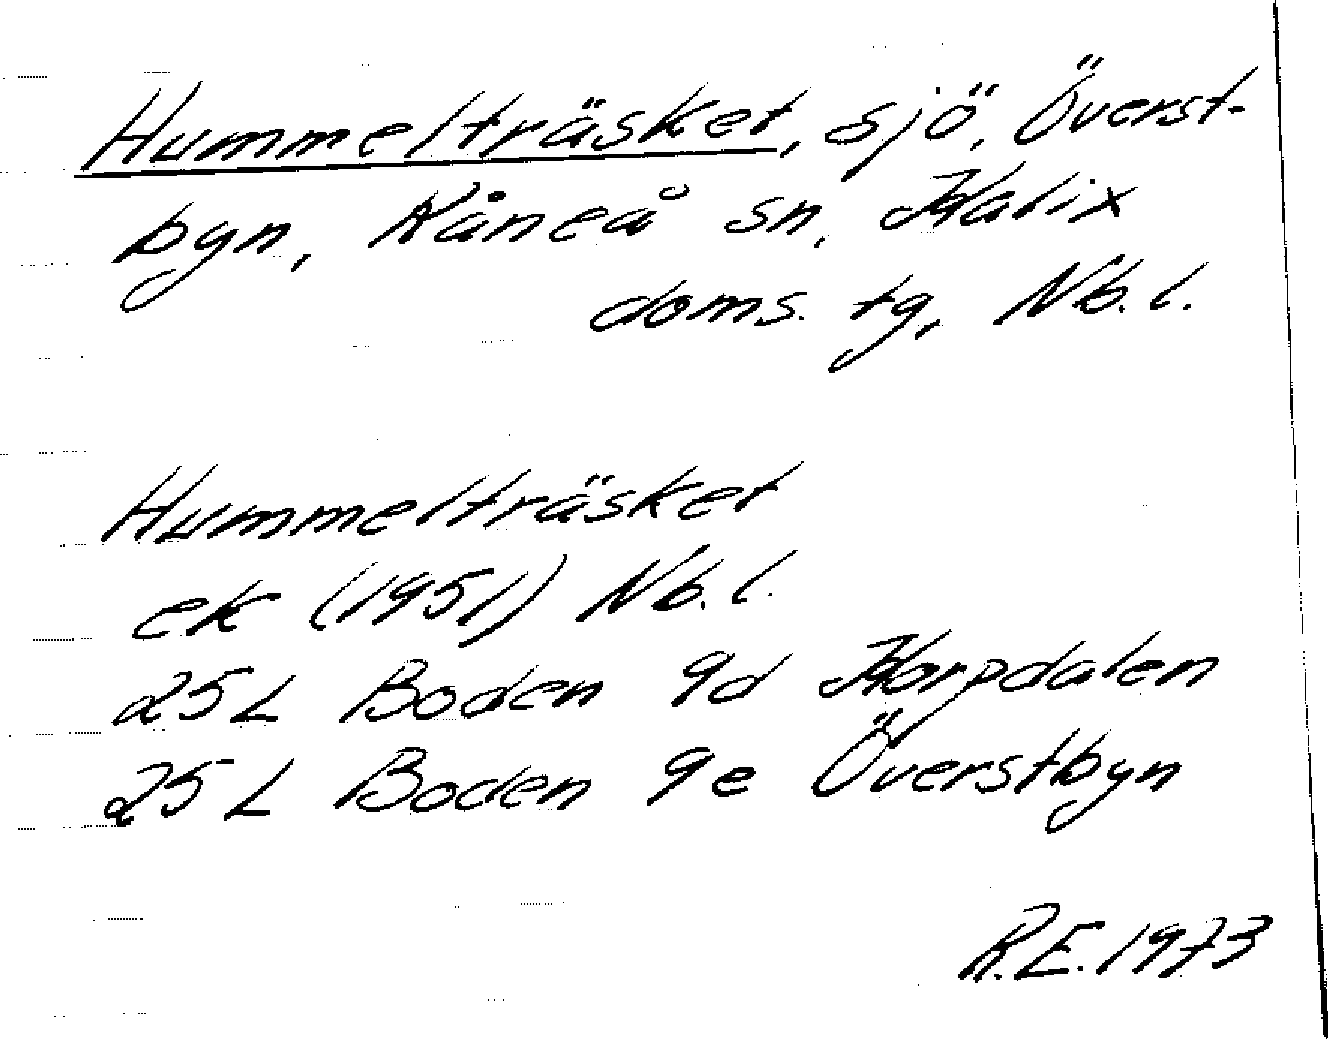 Hummelträsket, sjö, Överst-
byn, Råneå sn, Kalix
doms. tg, Nb.l.
Hummelträsket
ek (1951) Nb.l.
25 L Boden 9d Korpdalen
25 L Boden 9e Överstbyn
R.E. 1973